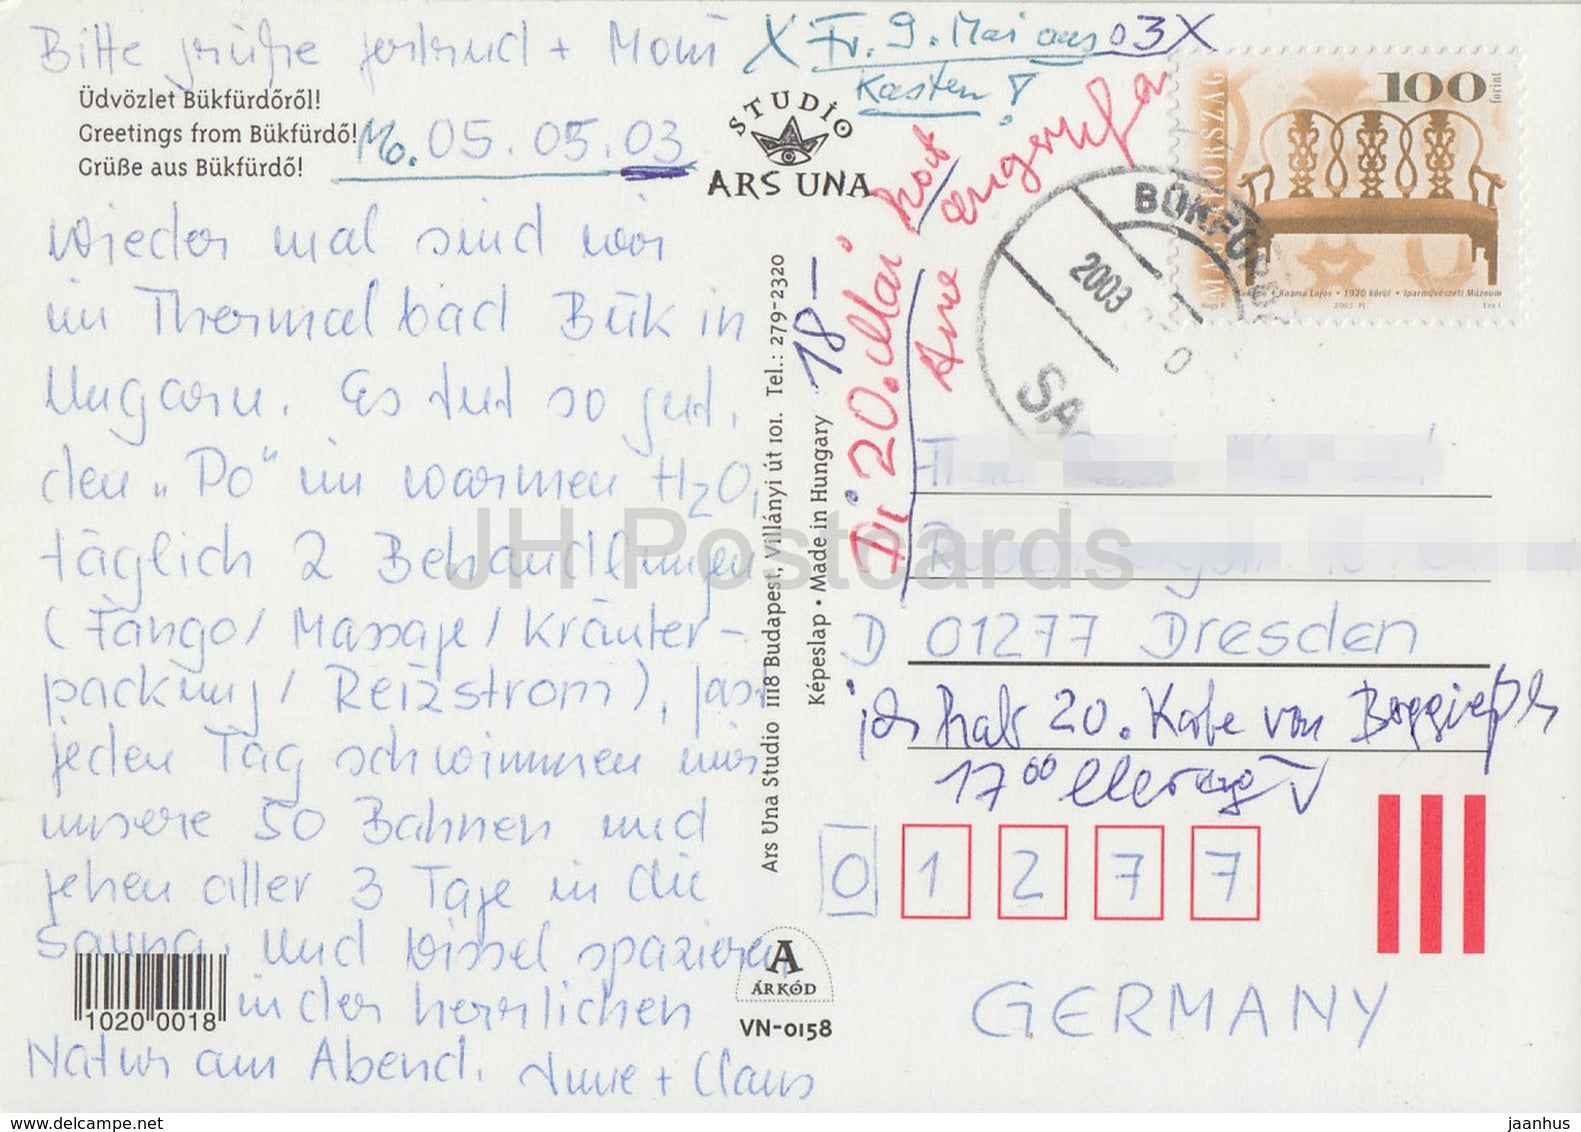 Bitte grüße Gertrud + Moni
X Fr. 9. Mai aus 03 X
Kasten!
Üdvözlet Bükfürdőről!
Greetings from Bükfürdő!
Grüße aus Bükfürdő!
Mo. 05. 05. 03
wieder mal sind wir
im Thermalbad Bük in
Ungarn. Es tut so gut,
den „Po" im warmen H2O,
täglich 2 Behandlungen
(Fango/Massage/Kräuter-
packung/Reizstrom), fast
jeden Tag schwimmen wir
unsere 50 Bahnen und
gehen aller 3 Tage in die
Sauna. Und bissel spazieren
in der herrlichen
Natur am Abend. Anne + Claus
10200018
STUDIO
ARS UNA
Ars Una Studio 1118 Budapest, Villányi út 101. Tel.: 279-2320
Képeslap • Made in Hungary
A
ÁRKÓD
VN-0158
18–
Di 20. Mai
Anne angerufen
MAGYARORSZÁG
100
forint
Kozma Lajos • 1920 körül • Iparművészeti Múzeum
2001
BÜKFÜRDŐ
2003
SA
Frau
D 01277 Dresden
ich hab 20. Karte von
17 00
0 1 2 7 7
GERMANY
JH Postcards
www.delcampe.net
jaanhus